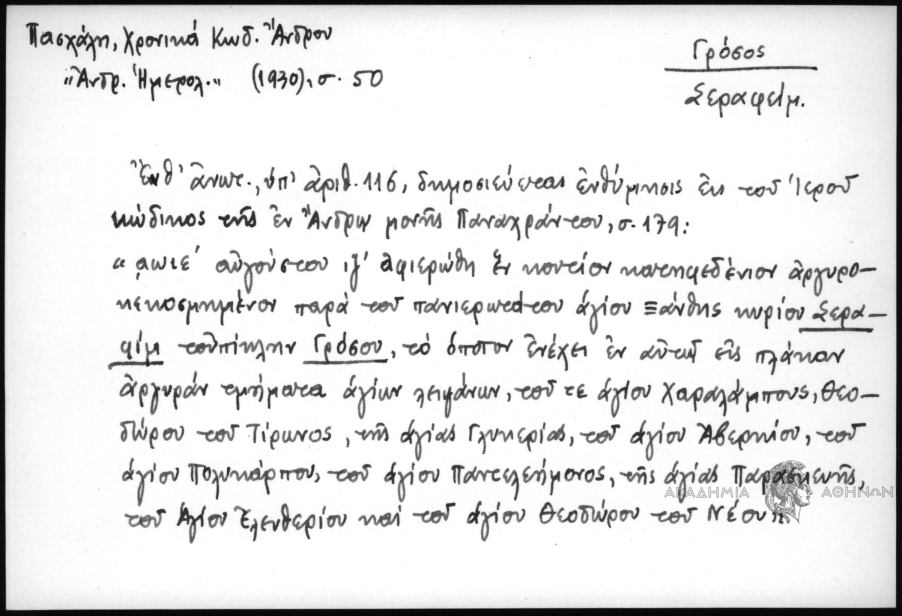 Πασχάλη, Χρονικά Κωδ. Ἄνδρου
"Ἀνδρ. Ἡμερολ." (1930), σ. 50
Γρόσος
Σεραφείμ.
Ἔνθ' ἄνωτ., ὑπ' ἀριθ. 116, δημοσιεύεται ἐνθύμησις ἐκ τοῦ Ἱεροῦ
κώδικος τῆς ἐν Ἄνδρῳ μονῆς Παναχράντου, σ. 179:
"͵αωιε' αὐγούστου ιζ' ἀφιερώθη ἓν κουτίον κατηφεδένιον ἀργυρο-
κεκοσμημένον παρὰ τοῦ πανιερωτάτου ἁγίου Ξάνθης κυρίου Σερα-
φὶμ τοὐπίκλην Γρόσου, τὸ ὁποῖον ἐνέχει ἐν αὐτῷ εἰς πλάκαν
ἀργυρᾶν τμήματα ἁγίων λειψάνων, τοῦ τε ἁγίου Χαραλάμπους, Θεο-
δώρου τοῦ Τίρωνος, τῆς ἁγίας Γλυκερίας, τοῦ ἁγίου Ἀβερκίου, τοῦ
ἁγίου Πολυκάρπου, τοῦ ἁγίου Παντελεήμονος, τῆς ἁγίας Παρασκευῆς,
τοῦ Ἁγίου Ἐλευθερίου καὶ τοῦ ἁγίου Θεοδώρου τοῦ Νέου".
ΑΚΑΔΗΜΙΑ ΑΘΗΝΩΝ